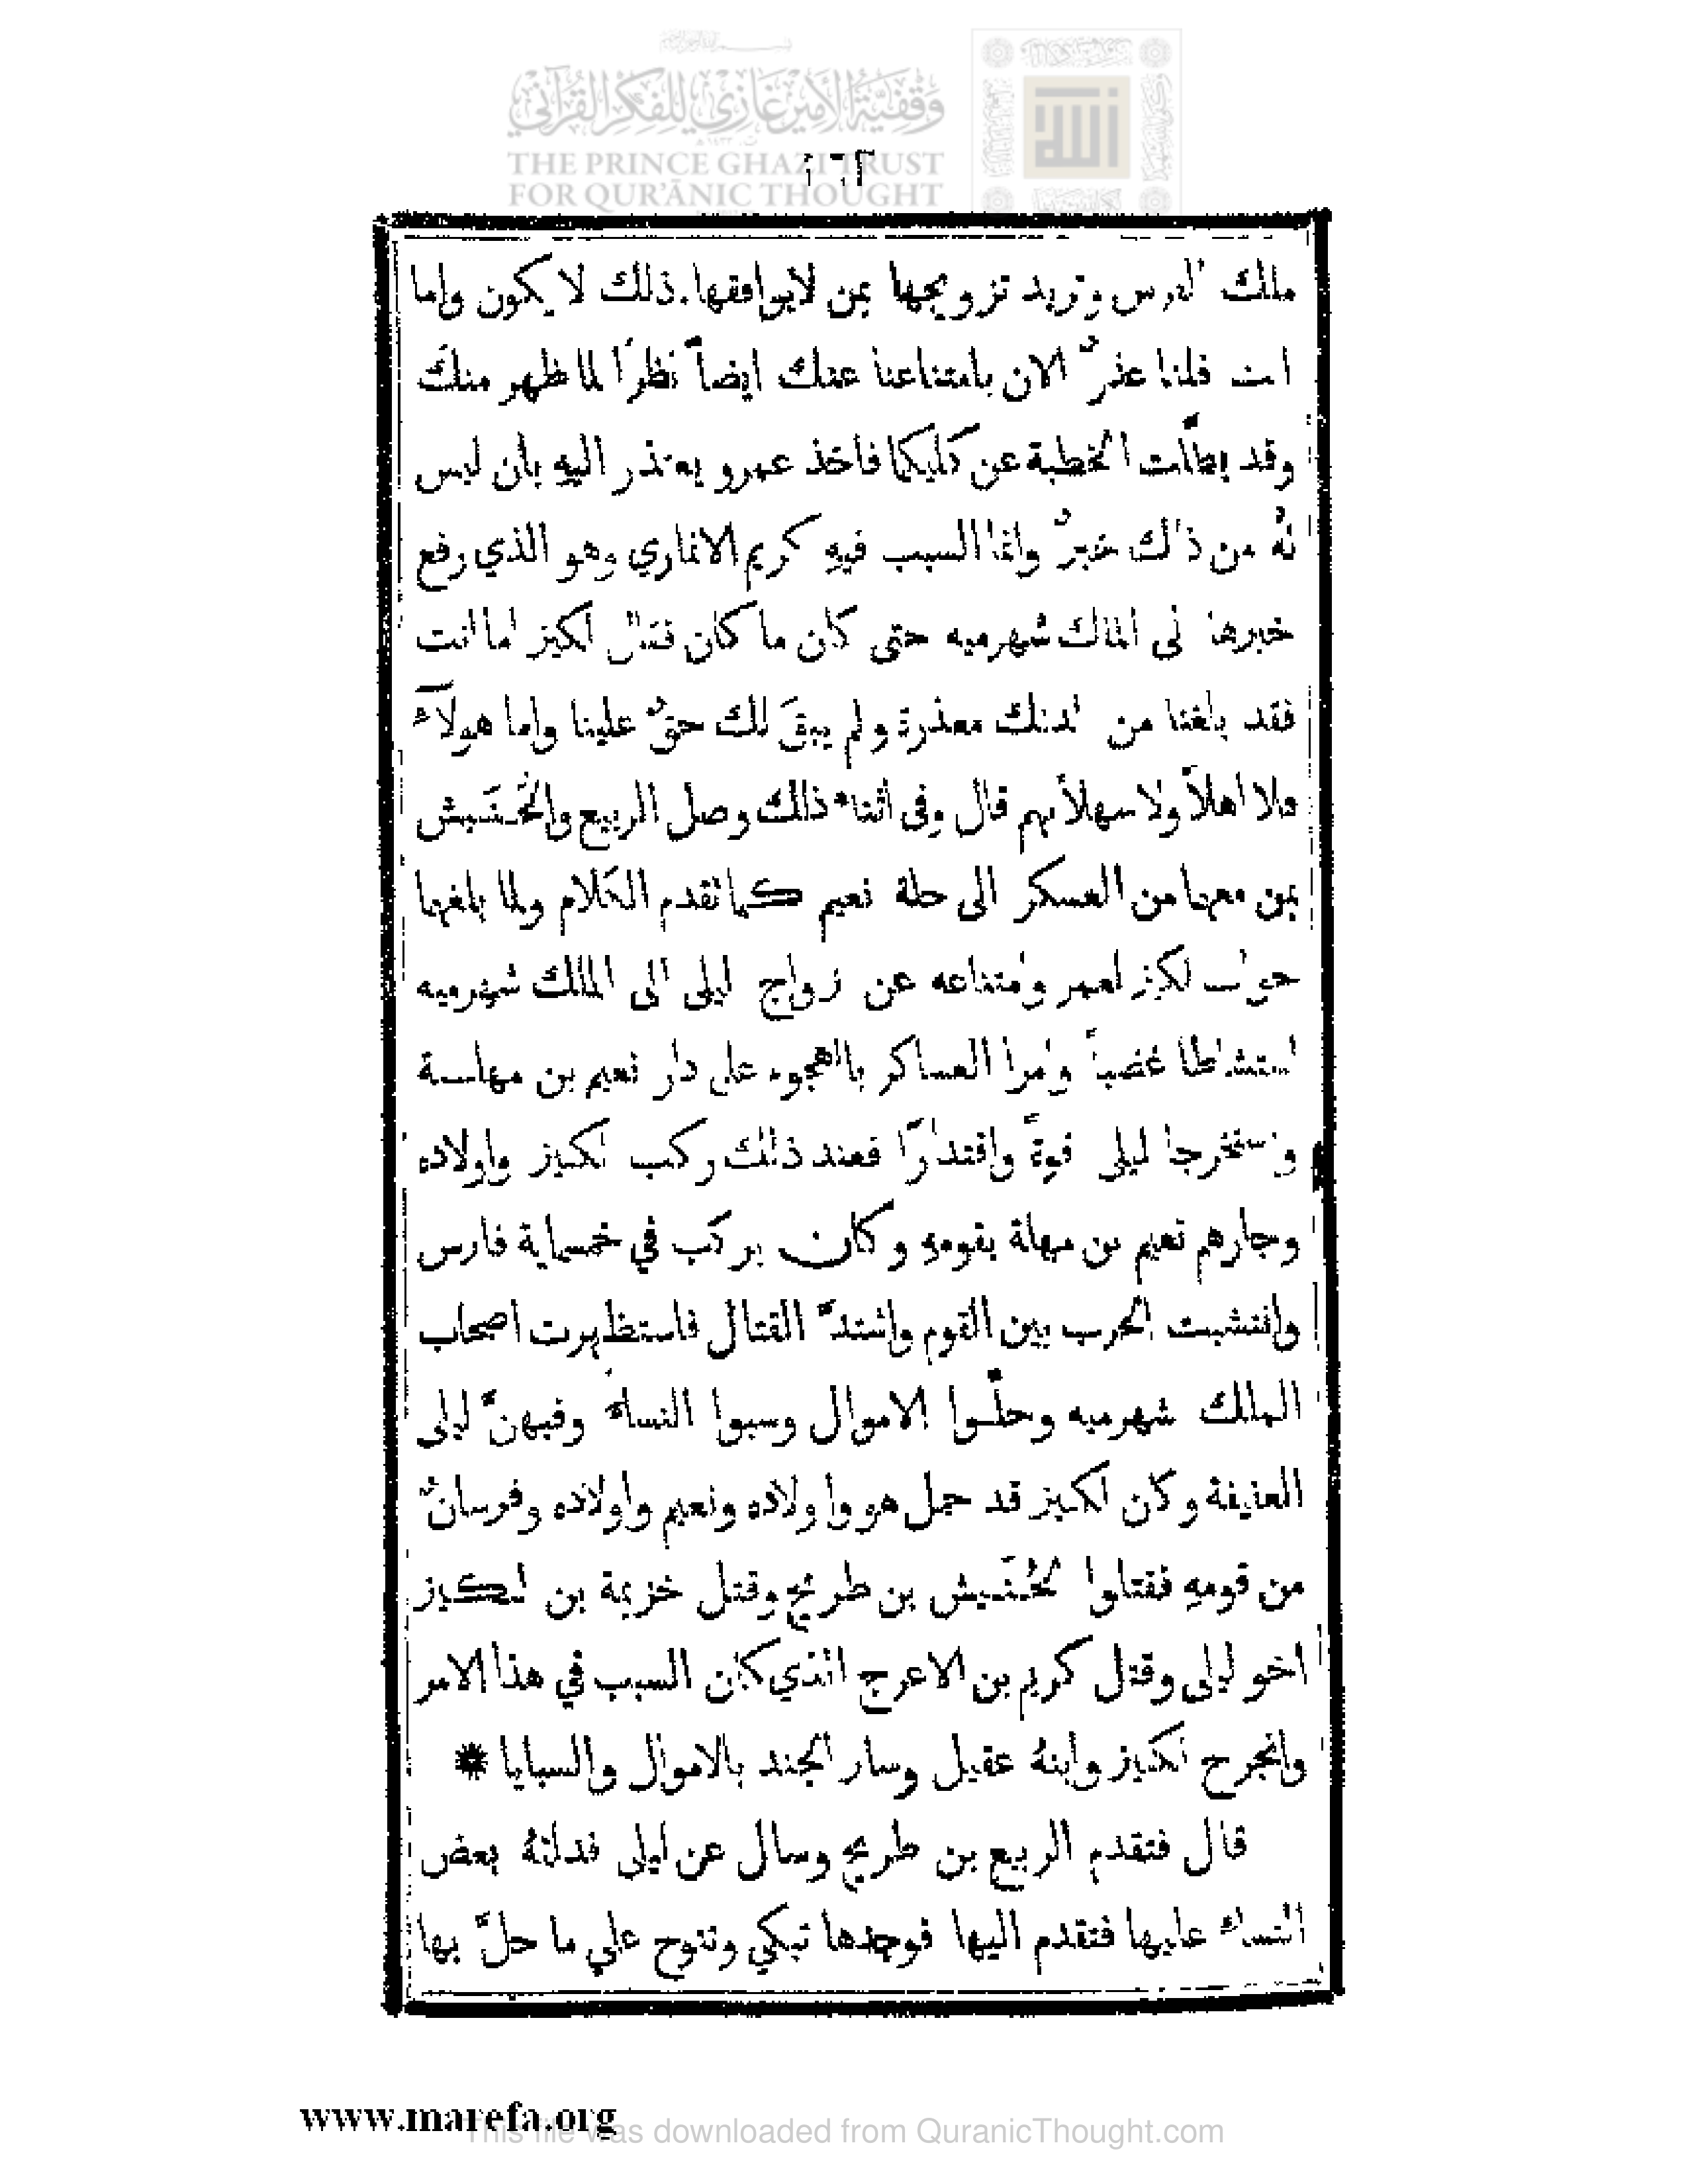 وقفية الأمير غازي للفكر القرآني
THE PRINCE GHAZI TRUST
FOR QUR'ĀNIC THOUGHT
ملك الفرس وتريد تزويجها بمن لايوافقها. ذلك لا يكون واما
انت فلنا عذرٌ الان بامتناعنا عنك ايضاً نظرًا لما ظهر منك
وقد بطلت الخطبة عن كليكما فاخذ عمرو يعتذر اليهِ بان ليس
لهُ من ذلك خبرٌ وانما السبب فيهِ كريم الانماري وهو الذي رفع
خبرها الى الملك شهرميه حتى كان ما كان فقال لكيز اما انت
فقد بلغتنا من لدنك معذرة ولم يبقَ لك حقٌ علينا واما هولآء
فلا اهلاً ولا سهلاً بهم قال وفي اثناء ذلك وصل الربيع والخُنَيش
بمن معهما من العسكر الى حلة نعيم كما تقدم الكلام ولما بلغهما
جواب لكيز لعمر وامتناعه عن زواج ليلى الى الملك شهرميه
استشاطا غضباً وامرا العساكر بالهجوم على دار نعيم بن مهلسة
واستخرجا ليلى قوةً واقتدارًا فعند ذلك ركب لكيز واولاده
وجارهم نعيم بن مهلة بقومهِ وكان يركب في خمسماية فارس
وانتشبت الحرب بين القوم واشتدَّ القتال فاستظهرت اصحاب
الملك شهرميه وحلّوا الاموال وسبوا النساء وفيهنَّ ليلى
العفيفة وكان لكيز قد حمل هو واولاده ونعيم واولاده وفرسانٌ
من قومهِ فقتلوا الخُنَيش بن طريح وقتل خزيمة بن لكيز
اخو ليلى وقتل كريم بن الاعرج الذي كان السبب في هذا الامر
وانجرح لكيز وابنهُ عقيل وسار الجند بالاموال والسبايا *
قال فتقدم الربيع بن طريح وسال عن ليلى فدلتهُ بعض
النساء عليها فتقدم اليها فوجدها تبكي وتنوح على ما حلَّ بها
www.marefa.org
This file was downloaded from QuranicThought.com